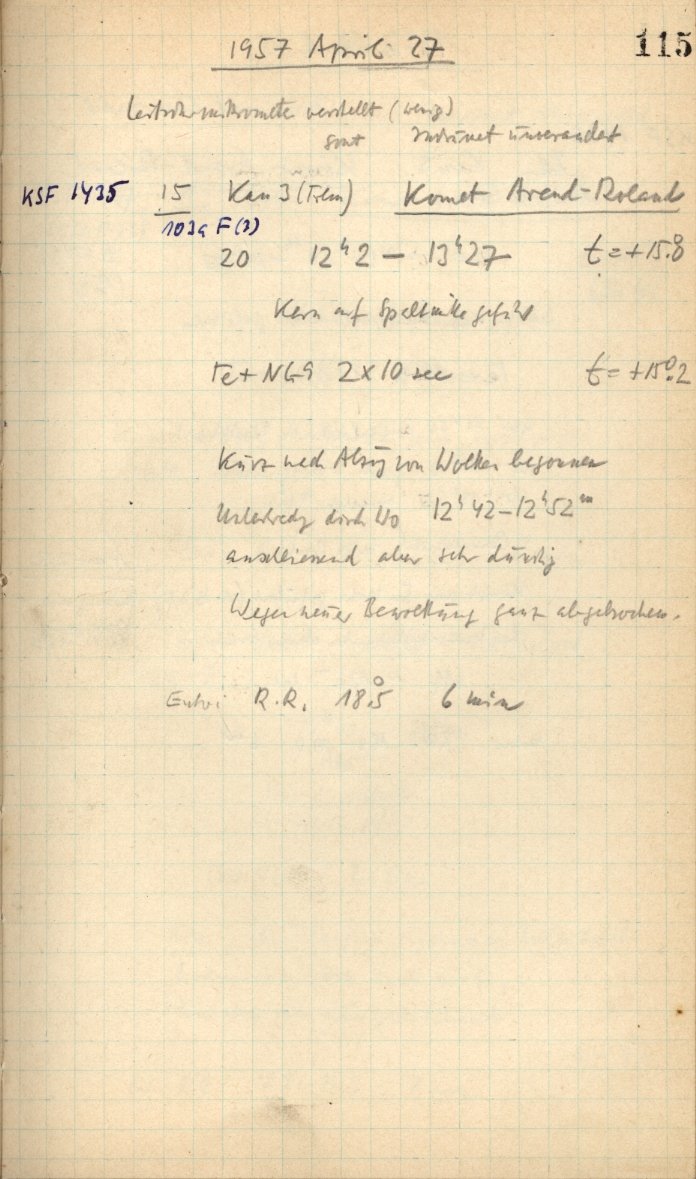 1957 April 27 115
Leitrohrmikrometer verstellt (wenig)
sonst unverändert
KSF 1435 15 Kam 3 (Film) Komet Arend-Roland
103a F(3)
20 12h2 — 13h27 t = +15.°8
Kern auf Spaltmitte geführt
Fe+NG9 2x10 sec t = +15.°2
Kurz nach Abzug von Wolken begonnen
durch Wo 12h42–12h52m
aber sehr dunstig
Wegen neuer Bewölkung ganz abgebrochen.
Entw: R.R. 18.°5 6 min